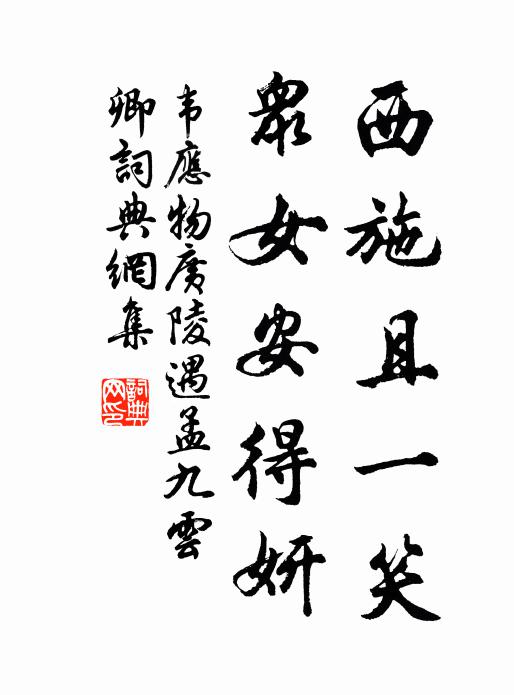 西施且一笑
眾女安得妍
韦應物廣陵遇孟九雲
卿詞典網集
詞典網印